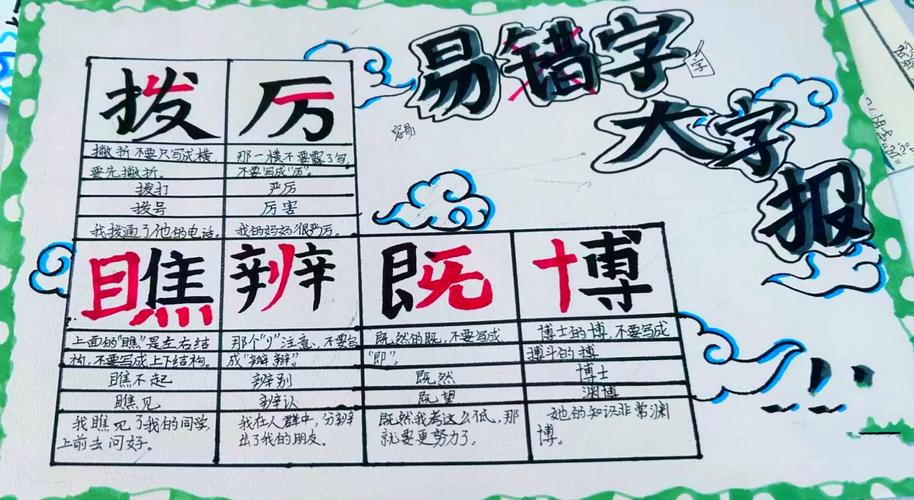 易错字
大字报
容易
字
拨
厉
撇折不要只写成横,
要先撇折。
那一横不要露了写,
不要写成"历"。
拨打
严厉
拨号
厉害
我拨通了他的电话。
我的妈妈很严厉。
瞧
辨
既
博
上面的"瞧"是左右结
构,不要写成上下结构。
那个"刂"注意,不要写
成"辫、辩"。
既然的既,不要写成
"即"。
博士的博,不要写成
搏斗的搏
瞧不起
辨别
既然
博士
瞧见
辨认
既望
渊博
我瞧见了我的同学,
上前去问好。
我在人群中,分辨
出了我的朋友。
既然我考这么低,那
就要更努力了。
她的知识非常渊
博。